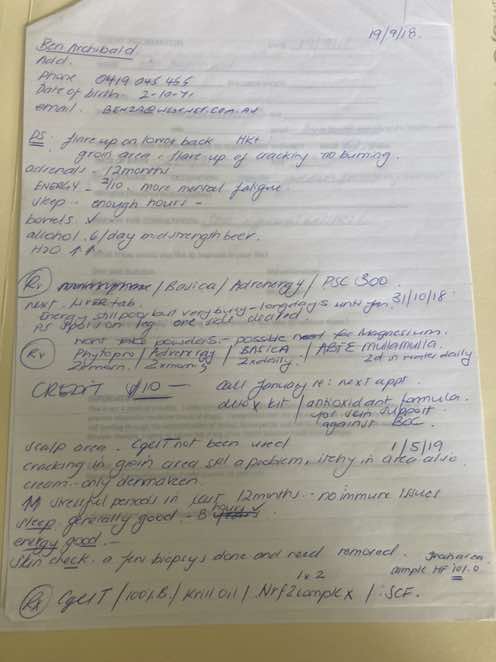 19/9/18.
Ben Archibald
Add.
Phone 0419 045 455
Date of birth 2-10-71
email.
PS. flare up on lower back
groin area - flare up of cracking no burning.
adrenals - 12months
ENERGY - /10. more mental fatigue
sleep - enough hours -
bowels ✓
alcohol. 6/day midstrength beer.
H2O ↑↑
Rx / Basica / Adrenergy / PSC 300
next. Liver tab. 31/10/18.
Energy still poor but very busy - long days until Jan.
PS spots on leg one side cleared
next powders - possible need for Magnesium.
Rx Phytopro / Adrenergy / BASICA /
2xmorn. 2xmorn 2xdaily. 2d in water daily
CREDIT $10 - Call January re: next appt.
detox kit / antioxidant formula.
for skin support
against BCC.
scalp area. CgelT not been used 1/5/19
cracking in groin area still a problem, itchy in area also.
cream - only dermaveen.
↑↑ stressful periods in last 12months - no immune issues
sleep generally good - 8 hours ✓
energy good. -
Skin check. a few biopsys done and need removed.
sample HF 101.0
1x2
Rx CgelT / / Krill Oil / Nrf2complex / SCF.